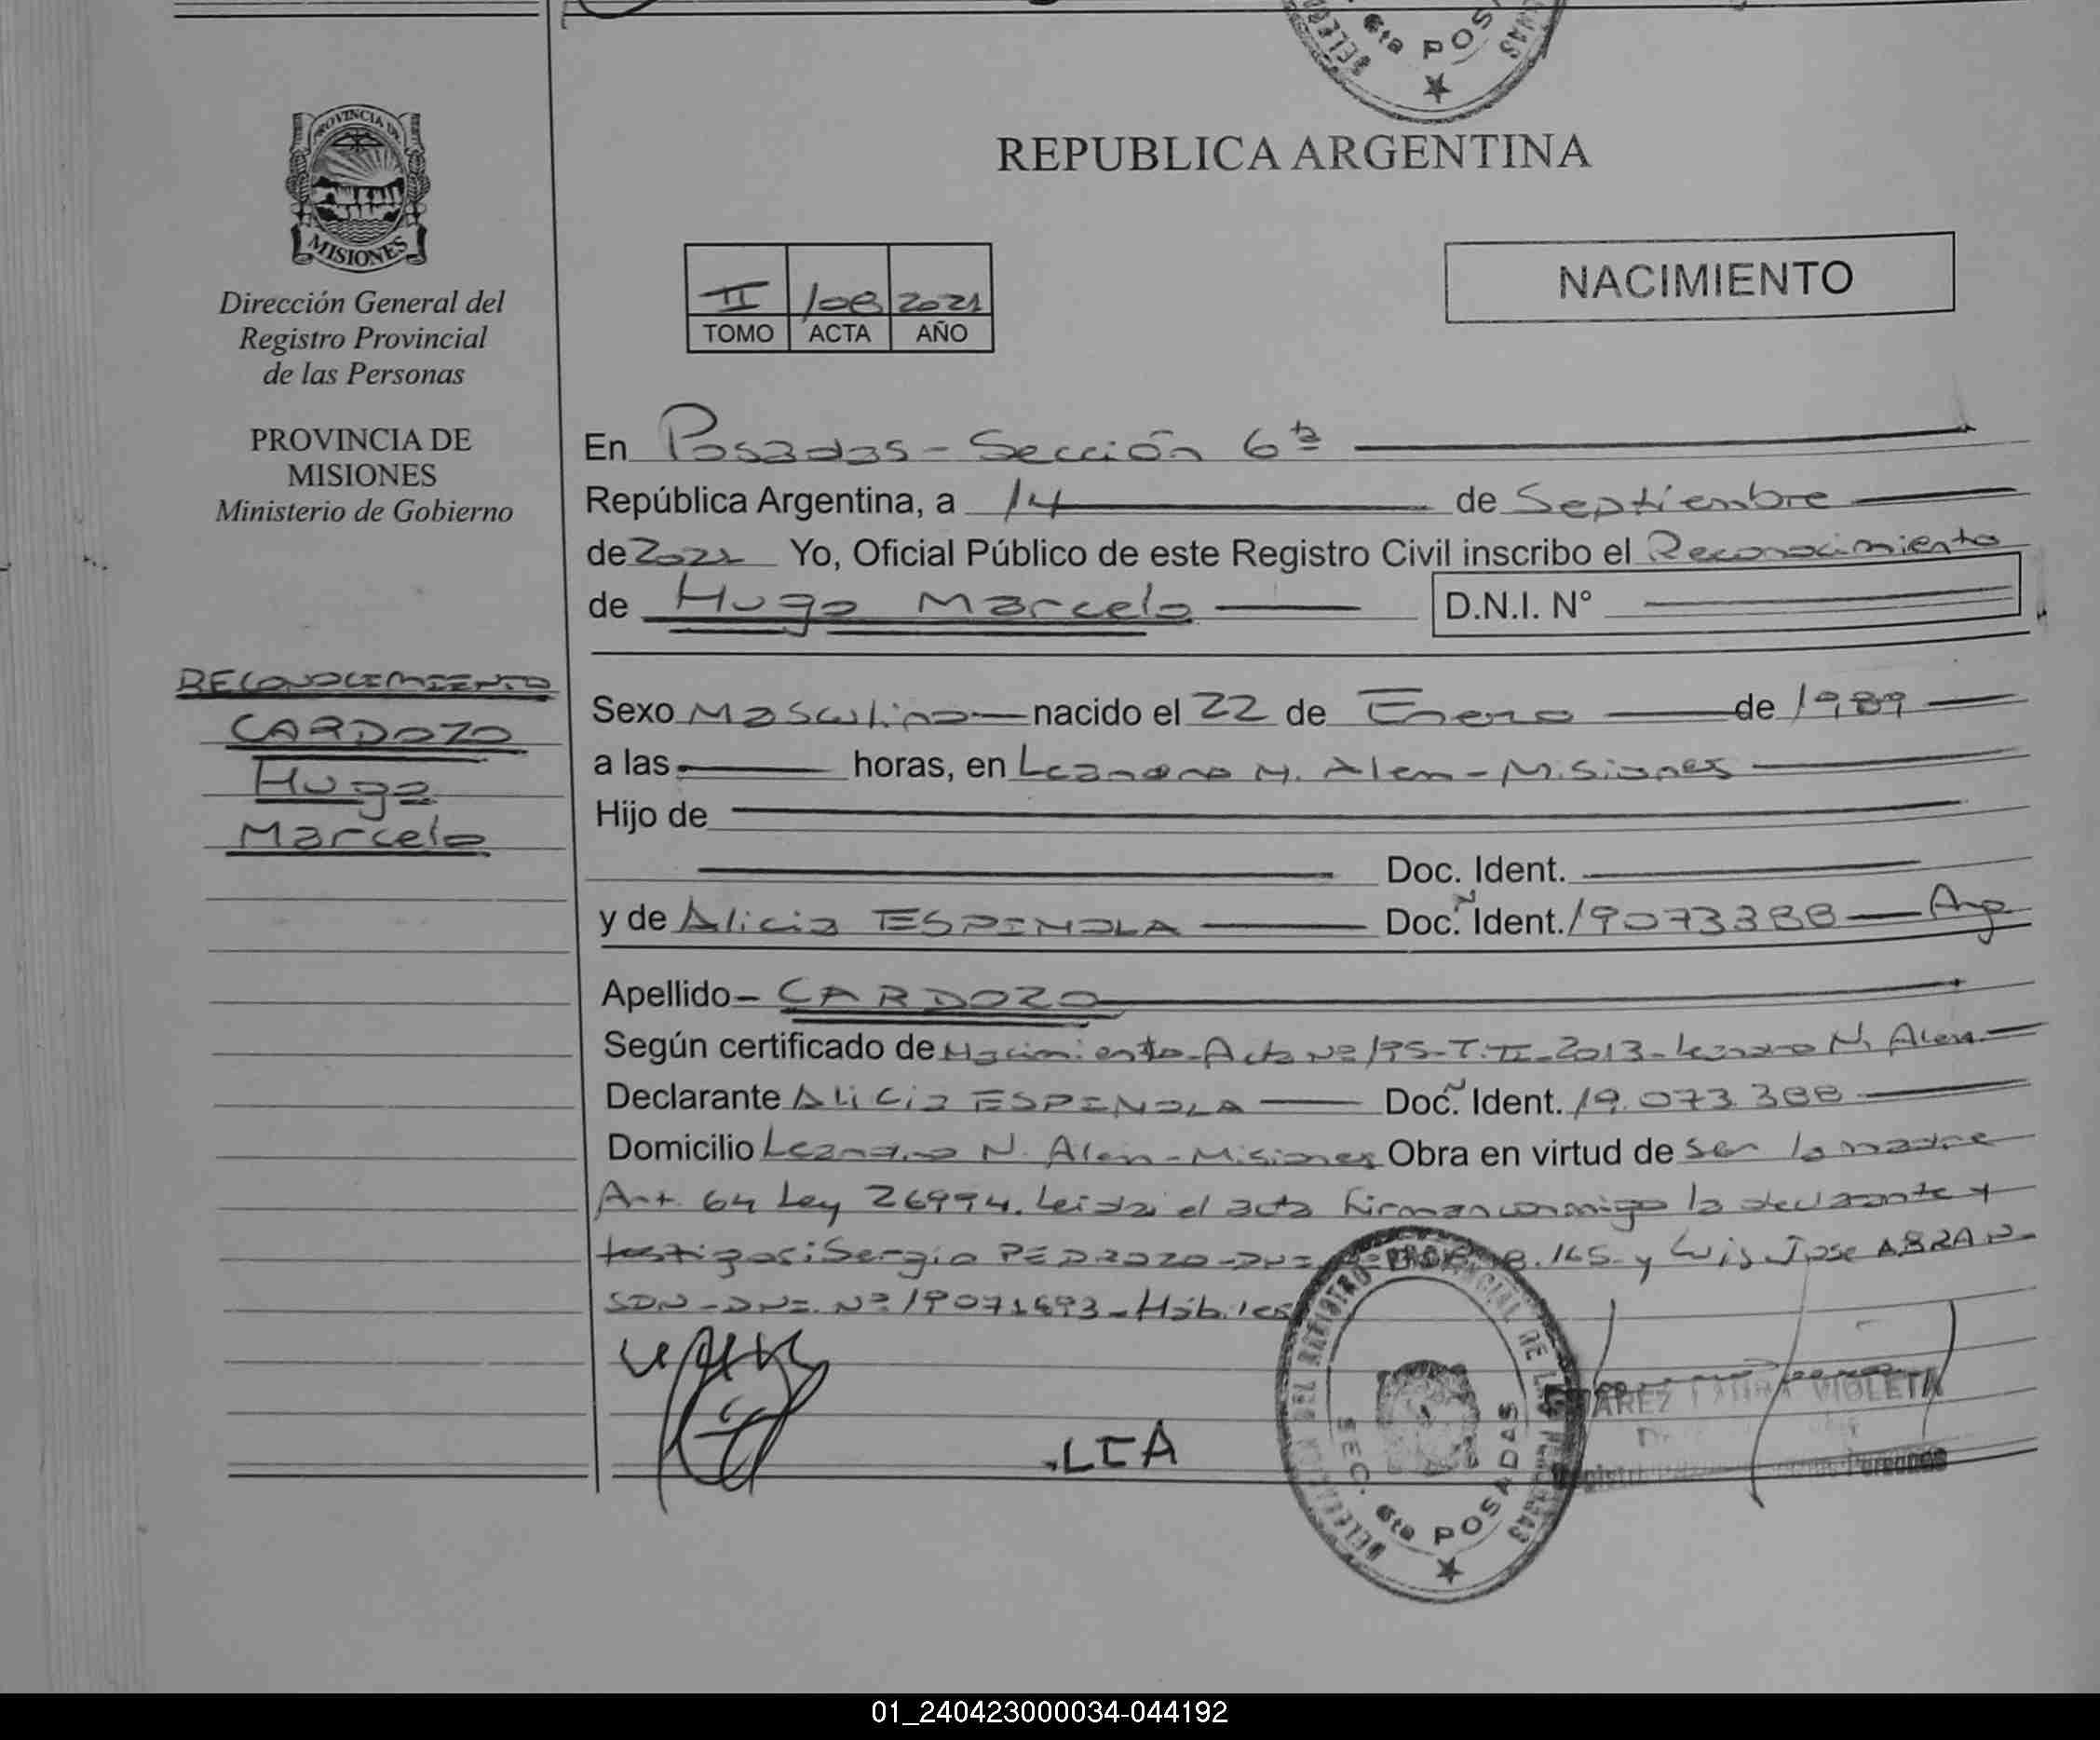 REPUBLICA ARGENTINA
PROVINCIA DE
MISIONES
Dirección General del
Registro Provincial
de las Personas
PROVINCIA DE
MISIONES
Ministerio de Gobierno
RECONOCIMIENTO
CARDOZO
Hugo
Marcelo
6ta POS
II 108 2021
TOMO ACTA AÑO
NACIMIENTO
En Posadas - Sección 6ta
República Argentina, a 14 de Septiembre
de 2021 Yo, Oficial Público de este Registro Civil inscribo el Reconocimiento
de Hugo Marcelo D.N.I. N°
Sexo Masculino nacido el 22 de Enero de 1989
a las horas, en Leandro N. Alem - Misiones
Hijo de
Doc. Ident.
y de Alicia ESPINOLA Doc. Ident. 19073388 Arg
Apellido - CARDOZO
Según certificado de Nacimiento - Acta Nº 195 - T. II - 2013 - Leandro N. Alem
Declarante Alicia ESPINOLA Doc. Ident. 19.073.388
Domicilio Leandro N. Alem - Misiones Obra en virtud de ser la madre
Art. 64 Ley 26994. Leida el acta firman conmigo la declarante y
testigos: Sergio PEDROZO - DNI 165 - y Luis Jose ABRAN-
SON - DNI Nº 19071693 - Hábiles
LIA
DELEGACION DEL REGISTRO PROVINCIAL DE LAS PERSONAS
SEC. 6ta POSADAS
VIOLETA
Personas
01_240423000034-044192